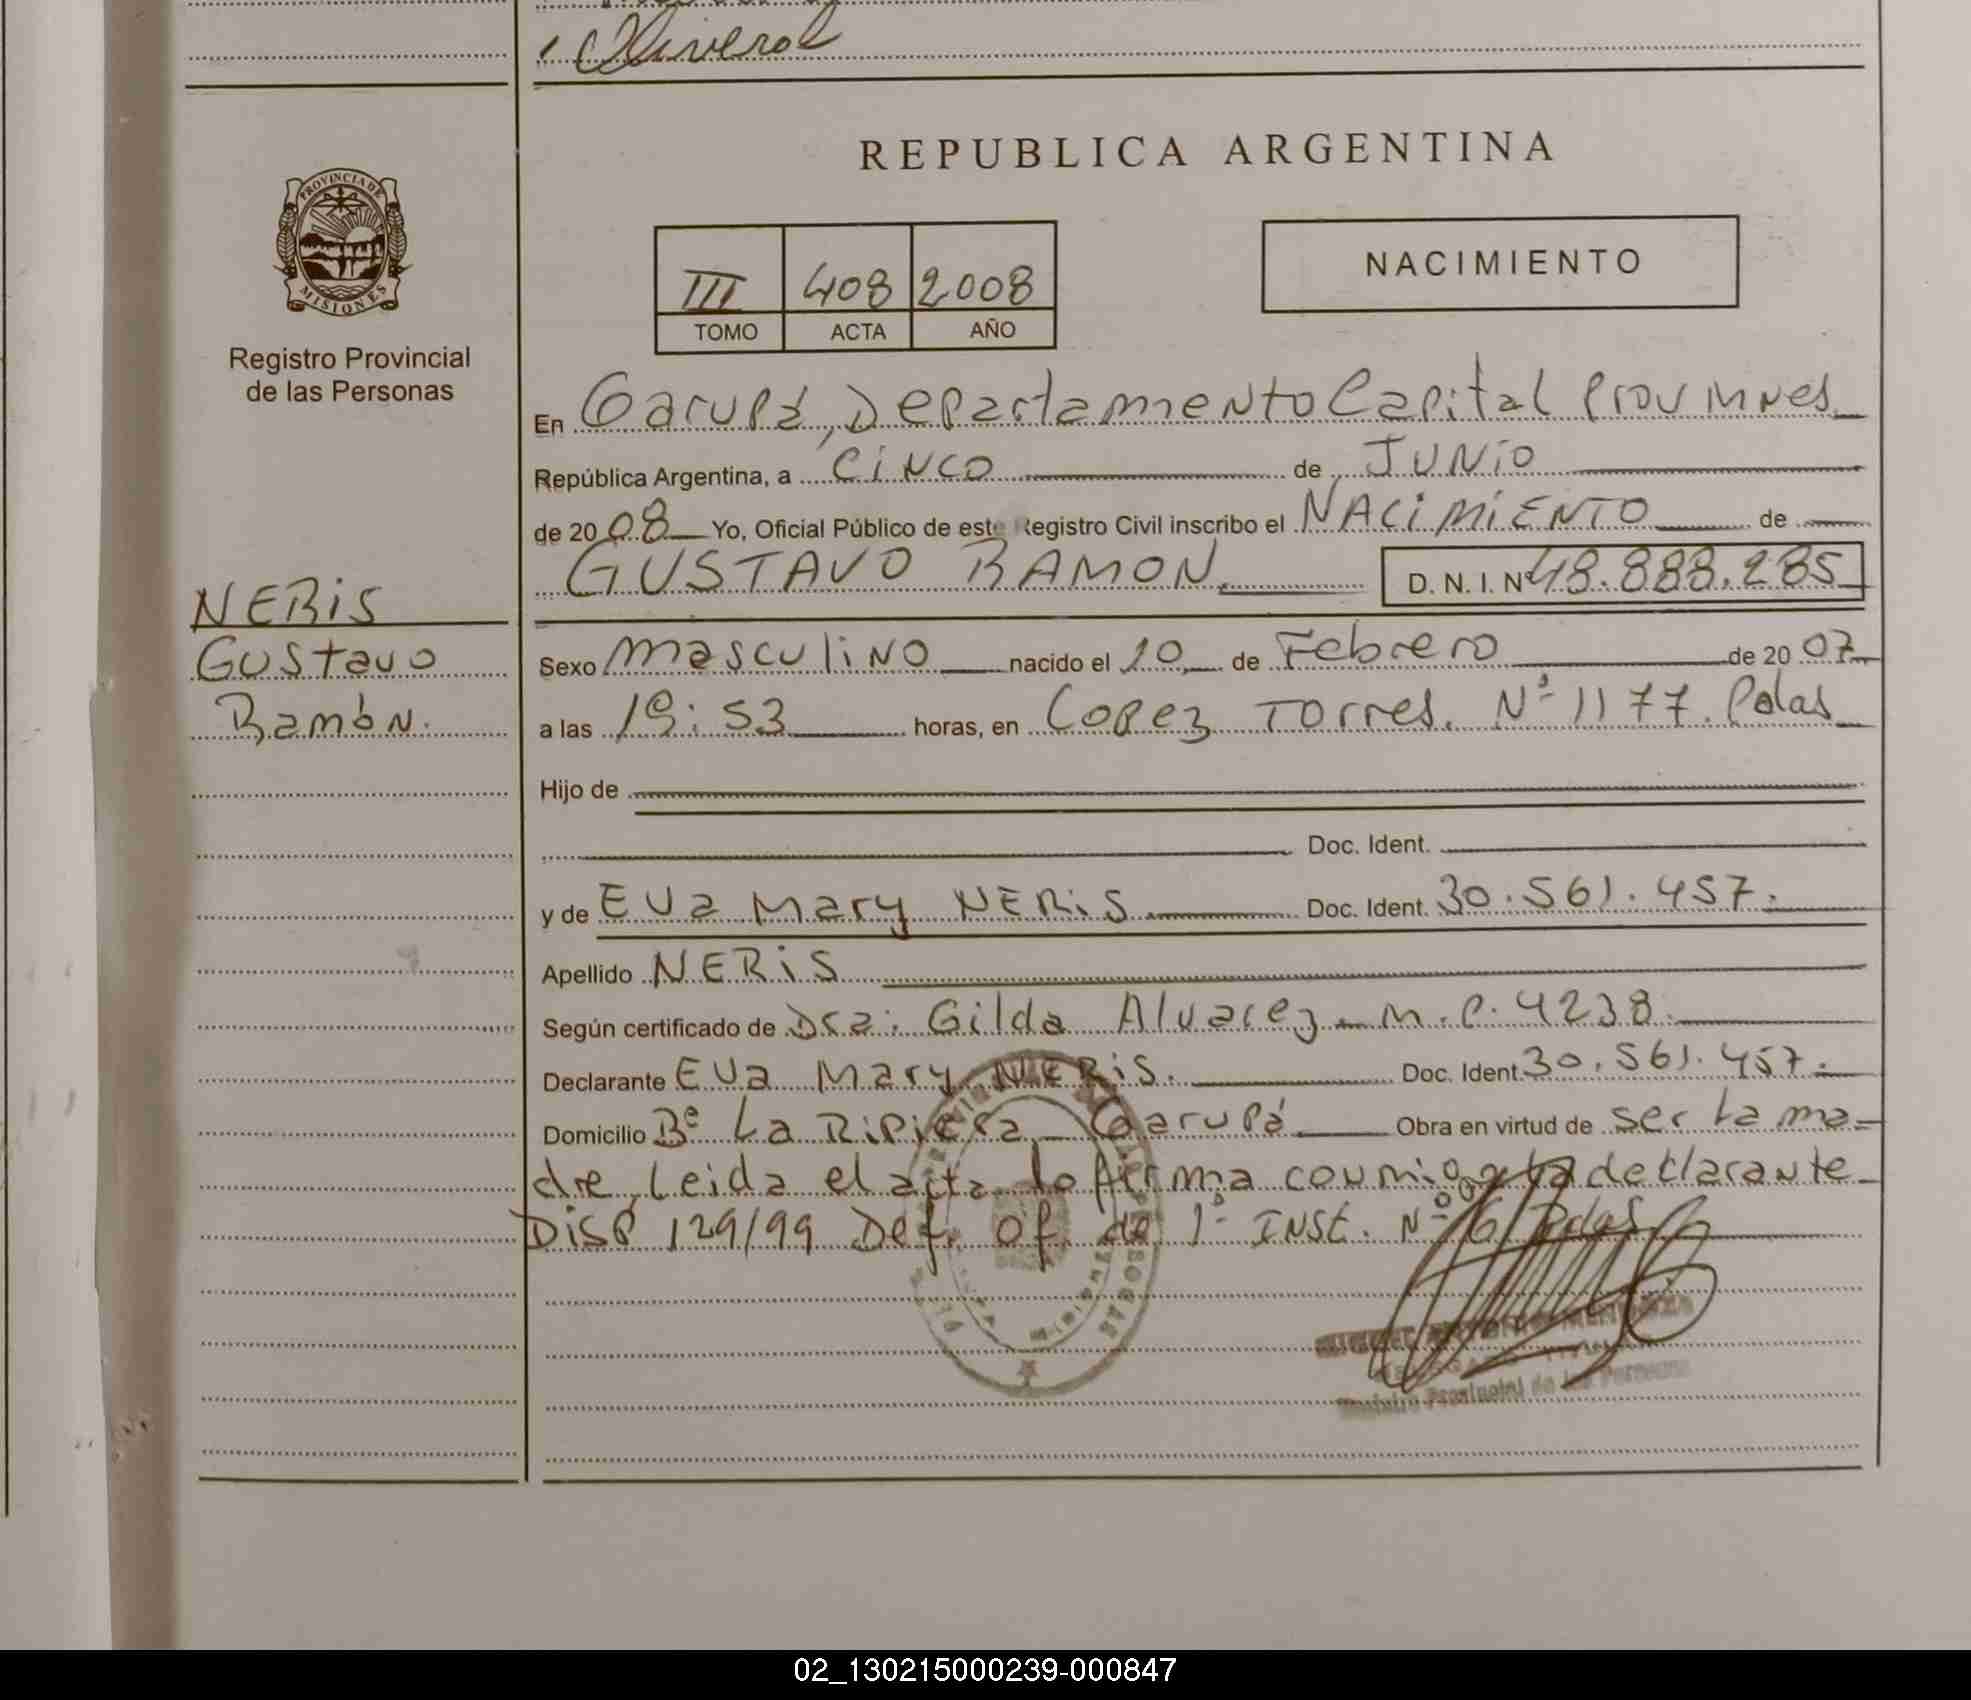 Oliverol
PROVINCIA DE
MISIONES
Registro Provincial
de las Personas
REPUBLICA ARGENTINA
III 408 2008
TOMO ACTA AÑO
NACIMIENTO
En Garupá, Departamento Capital Prov Mnes
República Argentina, a CINCO de JUNIO
de 2008 Yo, Oficial Público de este Registro Civil inscribo el NACIMIENTO de
GUSTAVO RAMON D. N. I. Nº 48.888.285
NERIS
Gustavo
Ramón.
Sexo masculino nacido el 10 de Febrero de 2007
a las 19:53 horas, en Lopez Torres. Nº 1177. Pdas
Hijo de
Doc. Ident.
y de Eva Mary NERIS Doc. Ident. 30.561.457.
Apellido NERIS
Según certificado de Dra: Gilda Alvarez - M.P. 4238.
Declarante Eva Mary NERIS. Doc. Ident. 30.561.457.
Domicilio Bº La Ripiera - Garupá Obra en virtud de ser la ma-
dre, Leida el acta la firma conmigo la declarante
Disp 129/99 Def. Of. de 1º INST. Nº 6 Pdas
Registro Provincial de las Personas
02_130215000239-000847